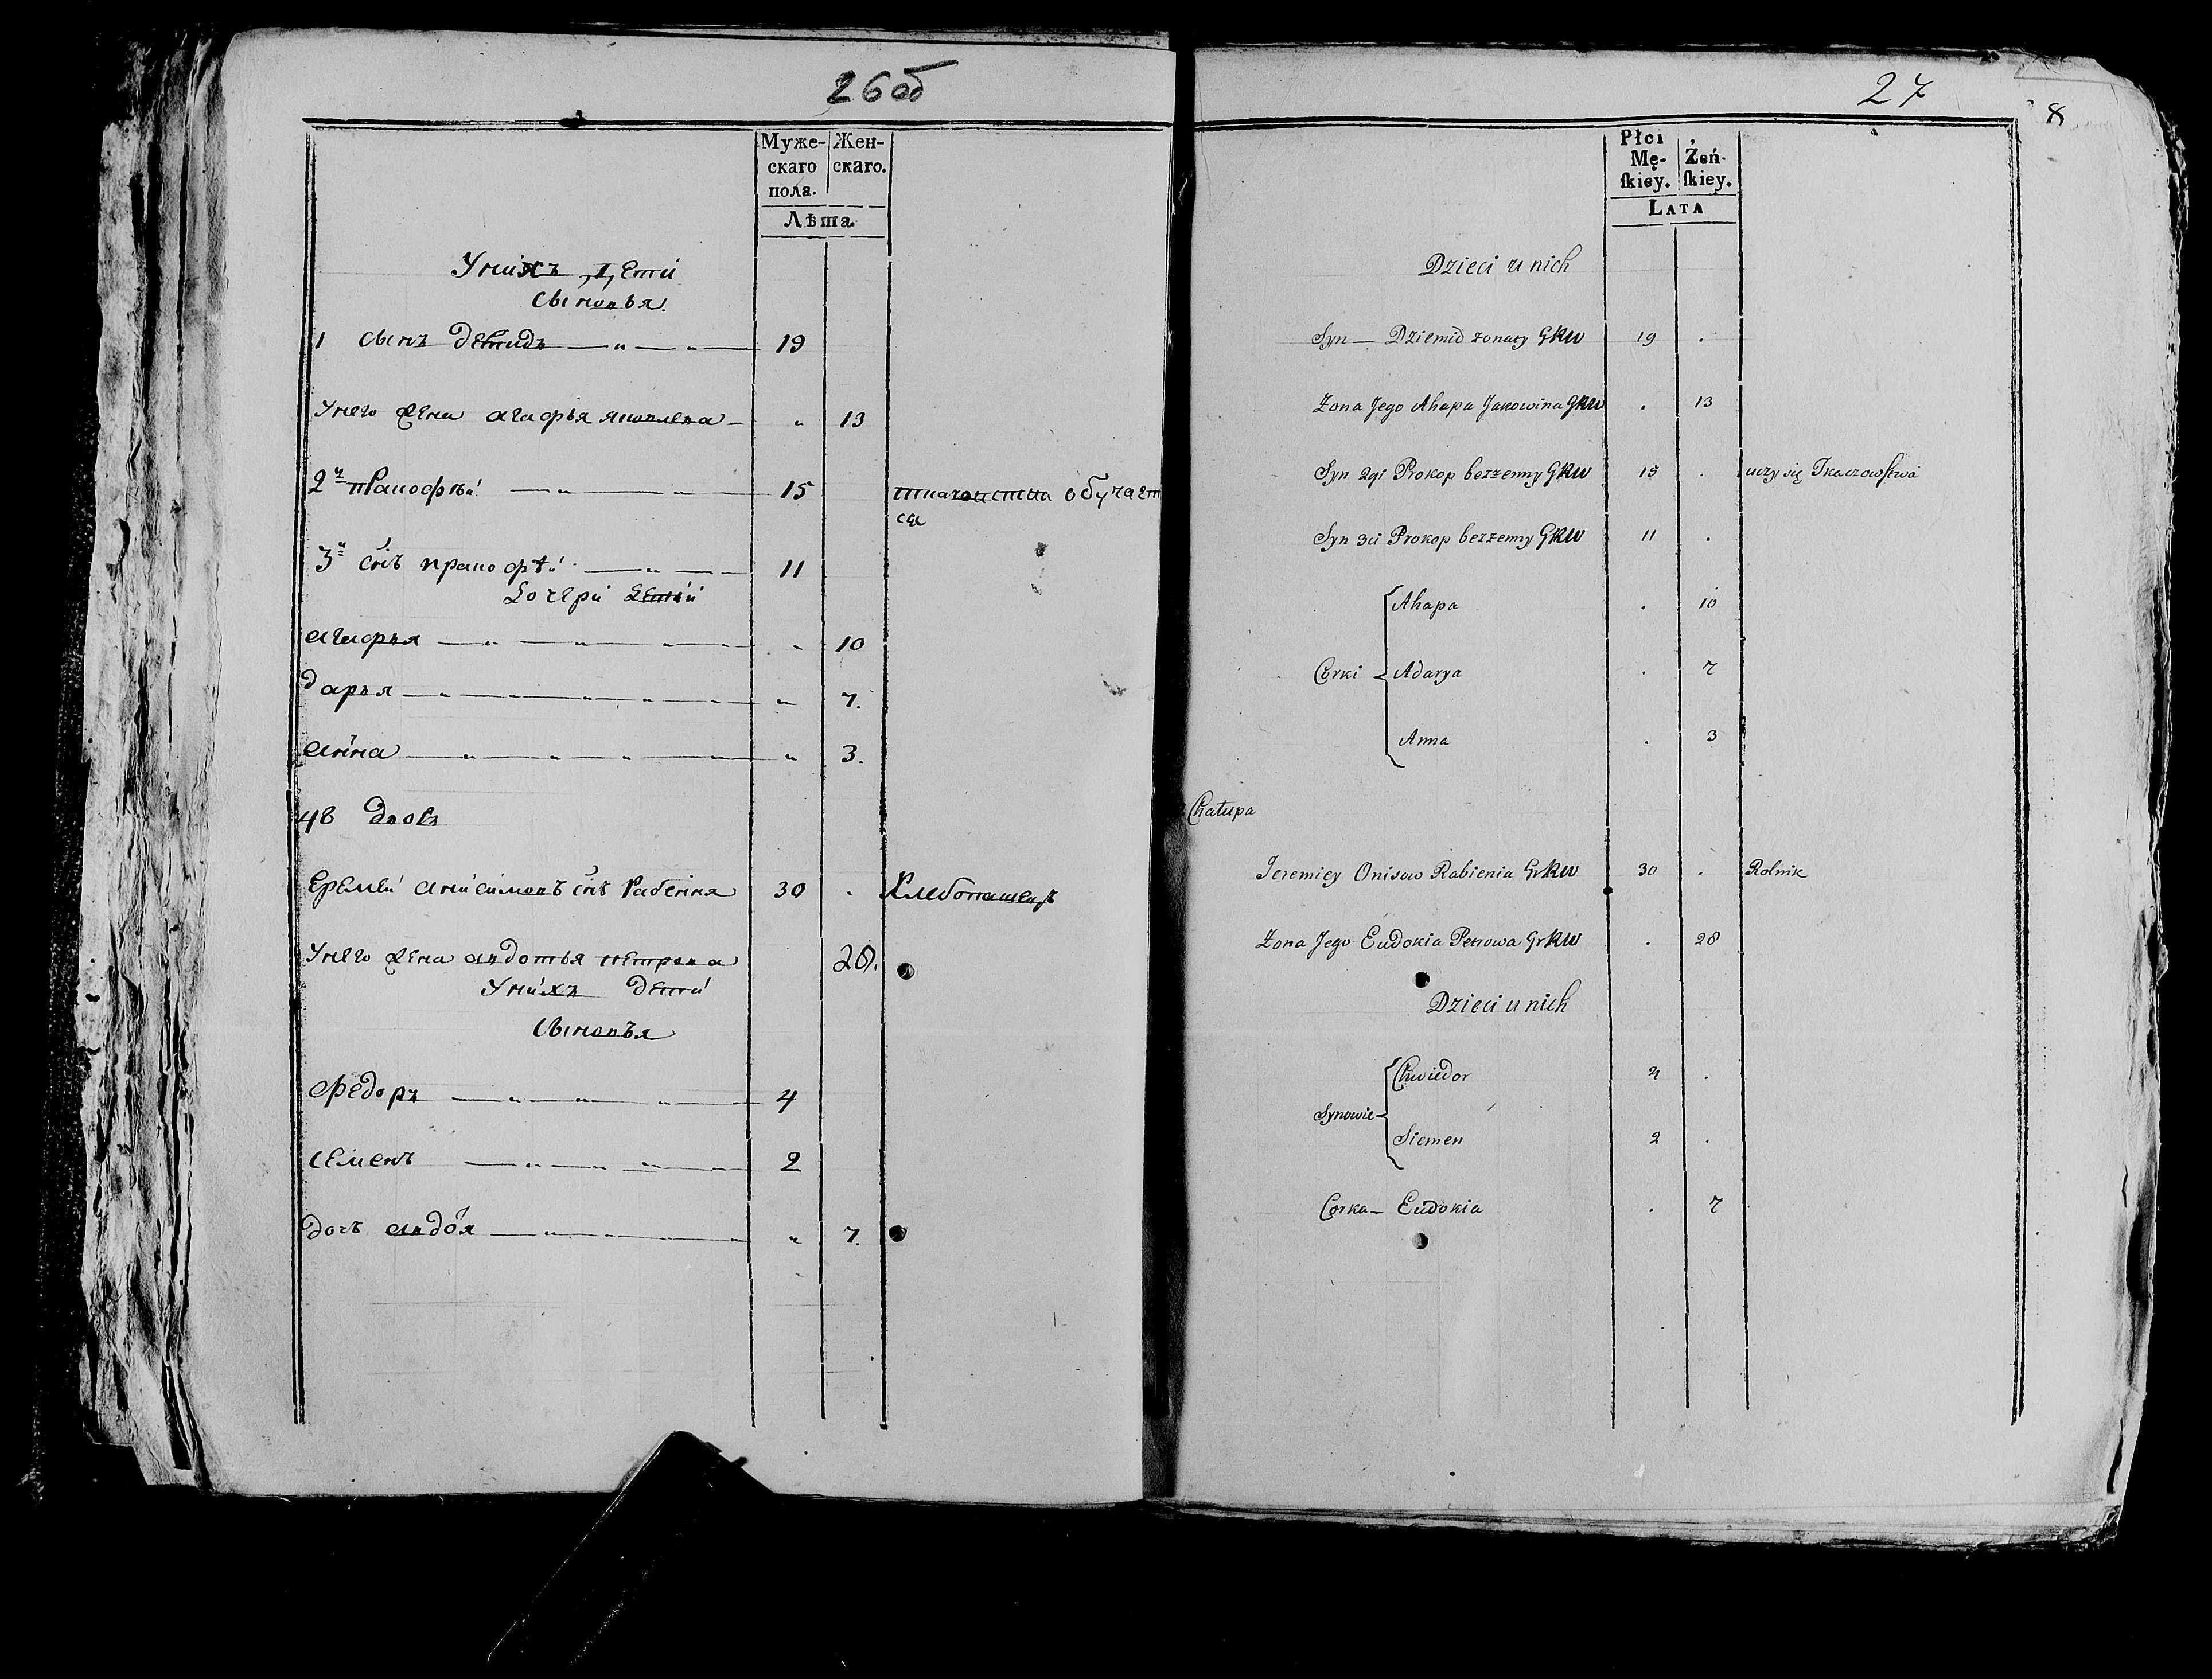 26об
Муже-
скаго
пола.
Жен-
скаго.
Лѣта.
У нихъ дети
сыновья
1 сынъ Демидъ 19
У него жена агафья яковлева 13
2й Пракофѣй 15 ткачовства обучает
ся
3й снъ пракофѣй 11
Дочери
агафья 10
дарья 7.
анна 3.
4в Дворъ
Еремей анисимовъ снъ Рабення 30 Хлебопашецъ
У него жена авдотья петрова 28.
У нихъ дети
сыновья
Федоръ 4
Семенъ 2
дочь 7.
27
8
Płci
Mę-
ſkiey.
Żeń-
ſkiey.
LATA
Dzieci u nich
Syn — Dziemid zonaty GRW 19 .
Zona Jego Ahapa Jakowina GRW . 13
Syn 2gi Prokop bezzenny GRW 15 . uczy się Tkaczowstwa
Syn 3ci Prokop bezzenny GRW 11 .
Ahapa . 10
Corki Adarya . 7
Anna . 3
Chałupa
Jeremiey Onisow Rabienia GrRW 30 . Rolnik
Zona Jego Eudokia Petrowa GrRW . 28
Dzieci u nich
Chwiedor 4 .
Synowie
Siemen 2 .
Corka — Eudokia . 7